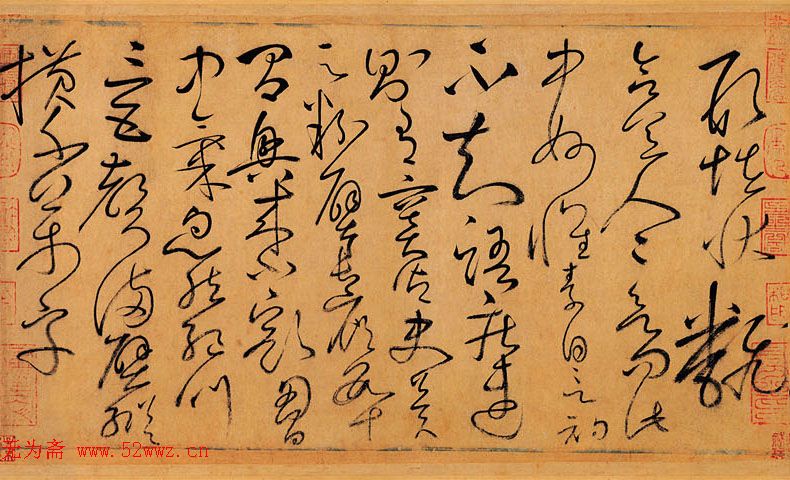 形怪狀翻
合宜人人欲問此
中妙懷素自言初
不知語疾速
則有竇御史冀
云粉壁長廊數十
間興來小豁胸
中氣忽然絕叫
三五聲滿壁縱
橫千萬字
无为斋 www.52wwz.cn